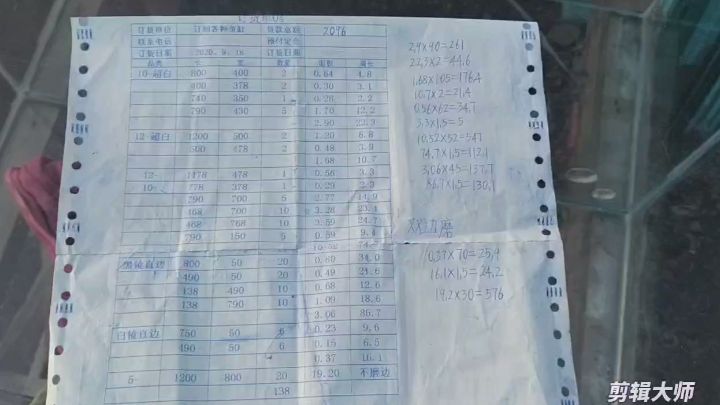 订货单位 订制各种鱼缸 货款总额 2096
联系电话 预付定金
订货日期 2020.9.18 订货日期
品类 长 宽 数量 面积 周长
10-超白 800 400 2 0.64 4.8
400 378 2 0.30 3.1
740 350 1 0.26 2.2
790 430 5 1.70 12.2
2.90 22.3
12-超白 1200 500 2 1.20 6.8
500 478 2 0.48 3.9
1.68 10.7
12- 1178 478 1 0.56 3.3
10- 778 378 1 0.29 2.3
790 700 5 2.77 14.9
468 700 10 3.28 23.4
468 768 10 3.59 24.7
790 150 5 0.59 9.4
10.52 74.7
800 50 20 0.80 34.0
490 50 20 0.49 21.6
138 490 10 0.68 12.6
138 790 10 1.09 18.6
3.06 86.7
白棱直边 750 50 6 0.23 9.6
490 50 6 0.15 6.5
0.37 16.1
5- 1200 800 20 19.20 不磨边
138
2,9×90=261
22,3×2=44,6
1,68×105=176,4
10,7×2=21,4
0,56×62=34,7
3,3×1,5=5
10,52×52=547
74,7×1,5=112,1
3,06×45=137,7
86,7×1,5=130,1
双边磨
0,37×70=25,9
16,1×1,5=24,2
19,2×30=576
剪辑大师